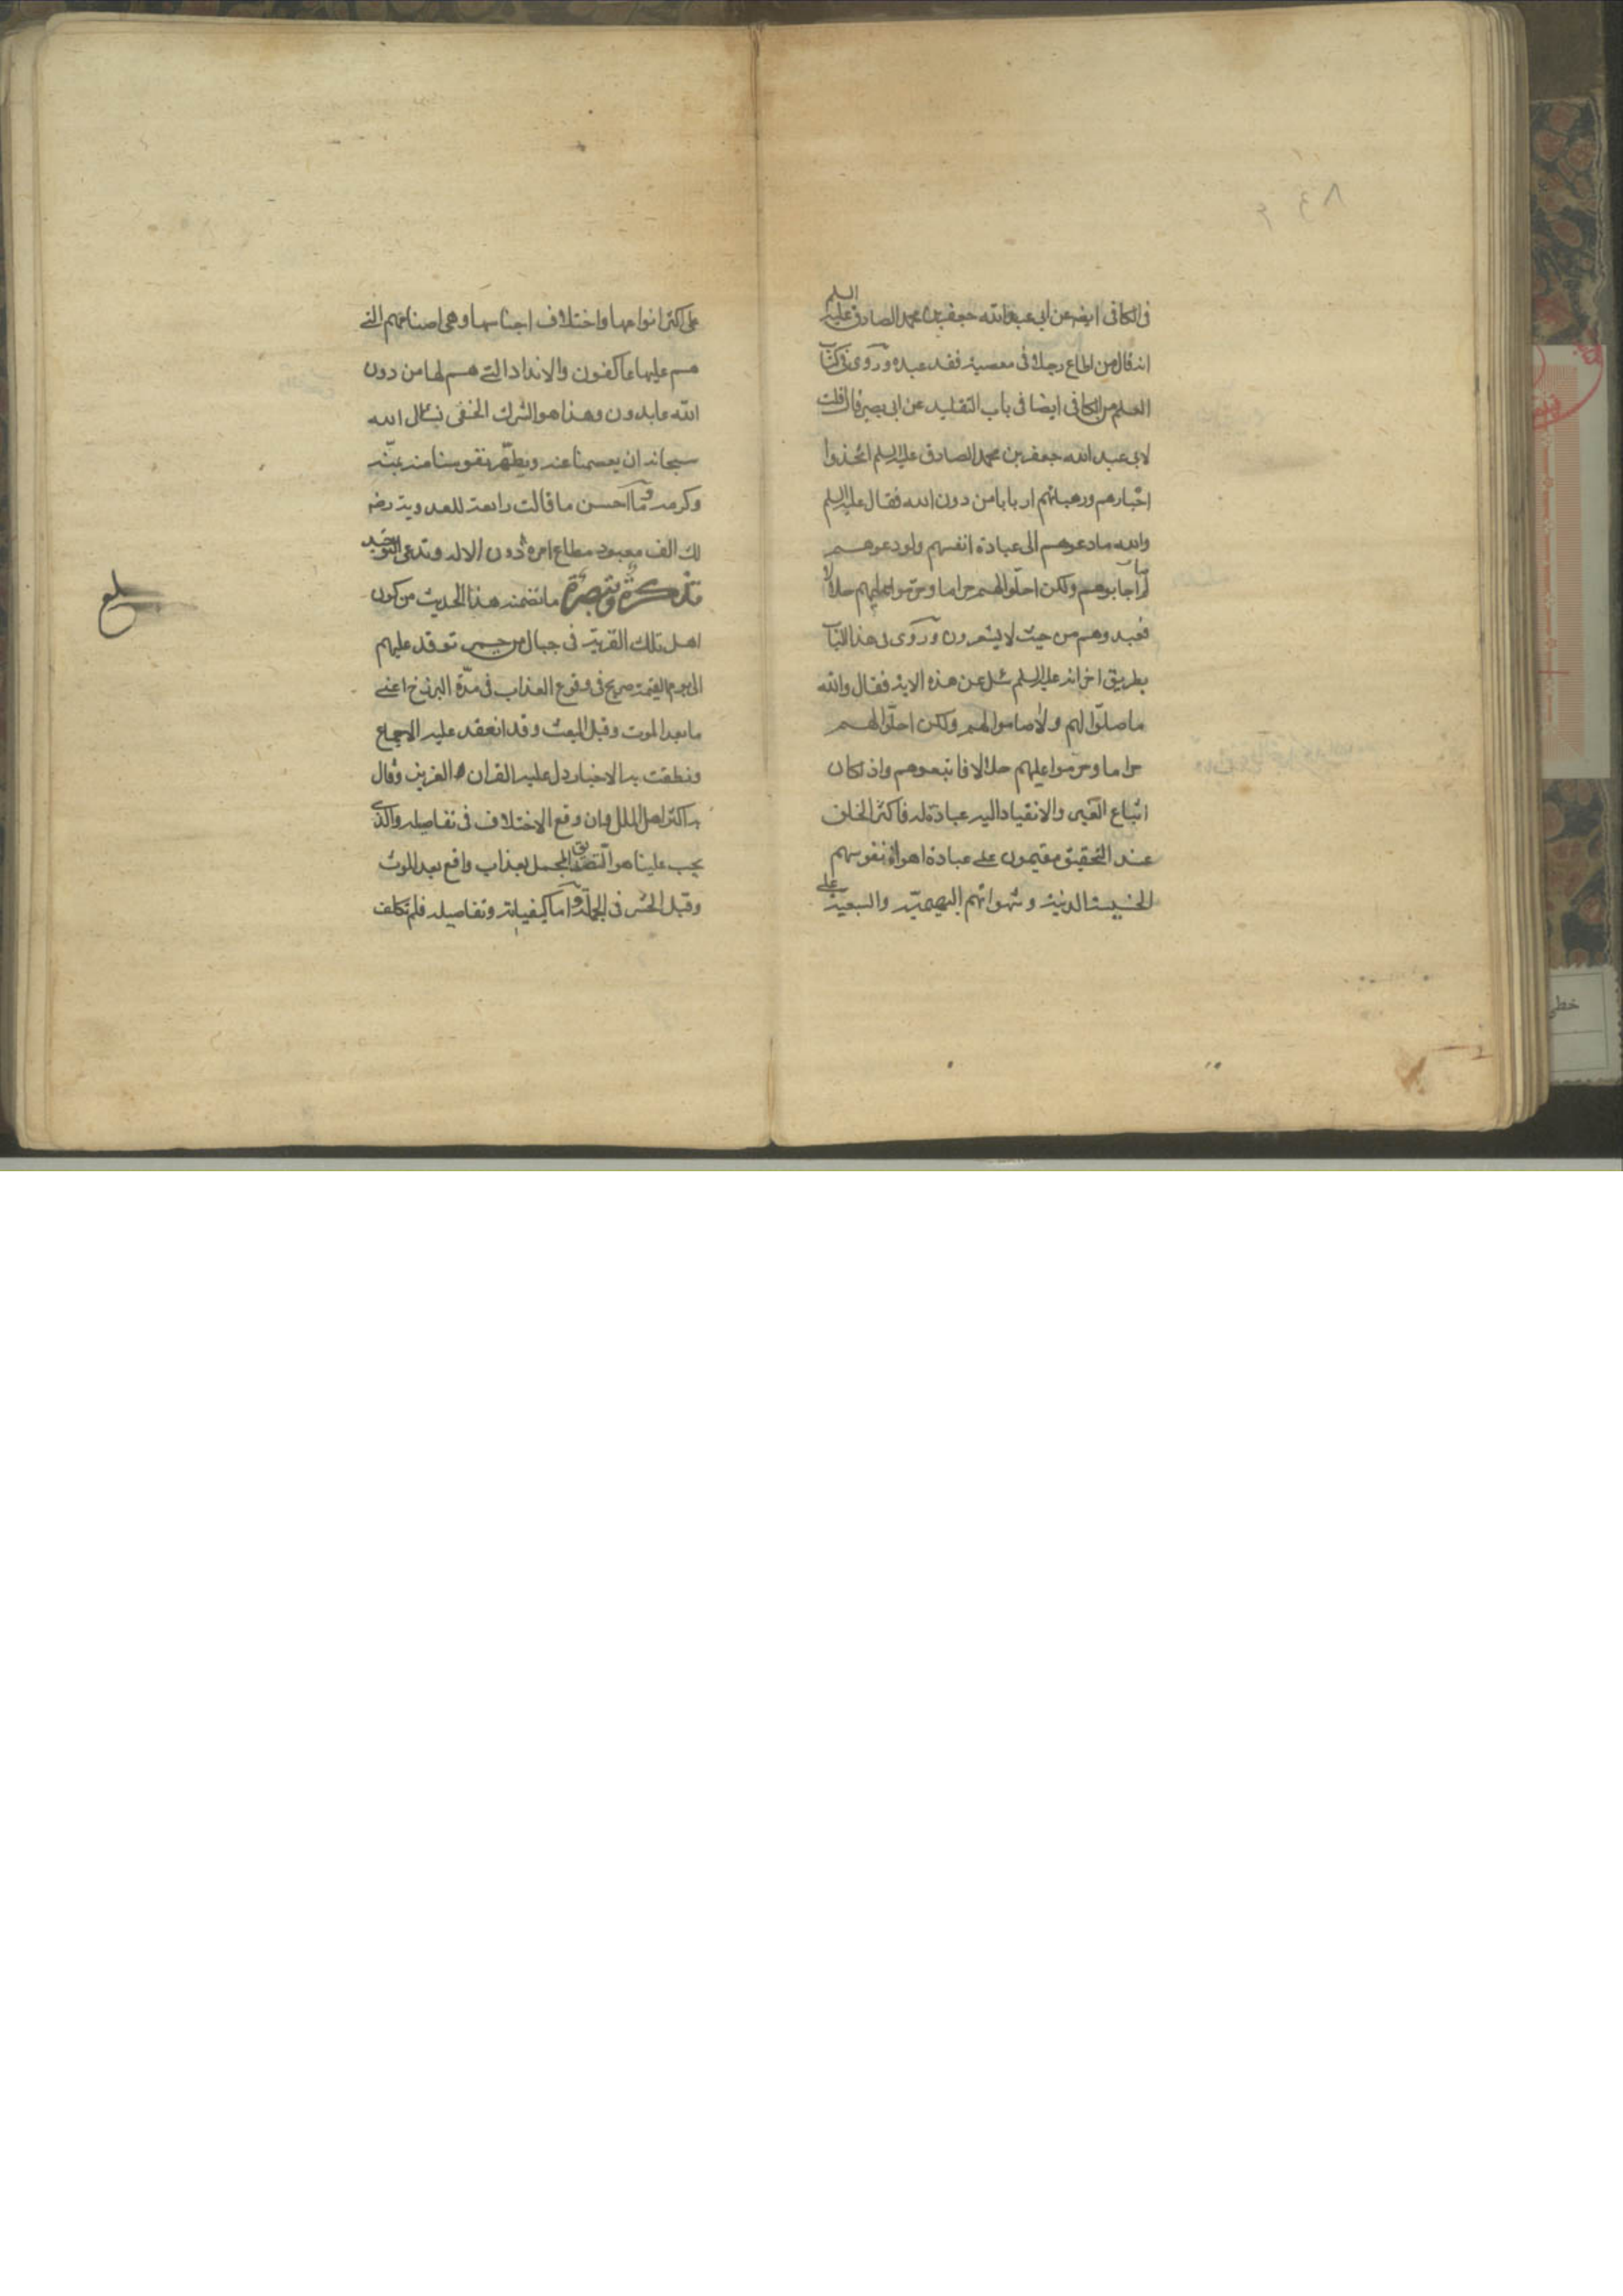 فى الكافى ايضا عن ابى عبد الله جعفر بن محمد الصادق عليه السلم
انه قال من اطاع رجلا فى معصية فقد عبده وروى فى كتاب
العلم من الكافى ايضا فى باب التقليد عن ابى بصير قال قلت
لابى عبد الله جعفر بن محمد الصادق عليه السلم اتخذوا
احبارهم ورهبانهم اربابا من دون الله فقال عليه السلم
والله ما دعوهم الى عبادة انفسهم ولو دعوهم
ما اجابوهم ولكن احلوا لهم حراما وحرموا عليهم حلالا
فعبدوهم من حيث لا يشعرون وروى فى هذا الباب
بطريق اخر انه عليه السلم سئل عن هذه الاية فقال والله
ما صلوا لهم ولا صاموا لهم ولكن احلوا لهم
حراما وحرموا عليهم حلالا فاتبعوهم واذا كان
اتباع الغير والانقياد اليه عبادة له فاكثر الخلق
عند التحقيق مقيمون على عبادة اهواء نفوسهم
الخسيسة الدنية وشهواتهم البهيمية والسبعية على
على اكثر انواعها واختلاف اجناسها وهى اصنامهم التى
هم عليها عاكفون والانداد التى هم لها من دون
الله عابدون وهذا هو الشرك الخفى نسال الله
سبحانه ان يعصمنا عنه ويطهر نفوسنا منه بمنه
وكرمه وما احسن ما قالت رابعة العدوية رض
لك الف معبود مطاع امره دون الاله وتدعى التوحيد
تذكرة وتبصرة ما تضمنه هذا الحديث من كون
اهل تلك القرية فى جبال من جمر توقد عليهم
الى يوم القيمة صريح فى وقوع العذاب فى مدة البرزخ اعنى
ما بعد الموت وقبل البعث وقد انعقد عليه الاجماع
ونطقت به الاخبار دل عليه القران العزيز وقال
به اكثر اهل الملل وان وقع الاختلاف فى تفاصيله والذى
يجب علينا هو التصديق المجمل بعذاب واقع بعد الموت
وقبل الحشر فى الجملة واما كيفياته وتفاصيله فلم نكلف
بلغ
خطى